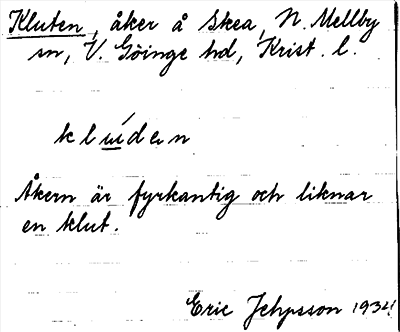 Kluten, åker å Skea, N. Mellby
sn, V. Göinge hd, Krist. l.
kluuden
Åkern är fyrkantig och liknar
en klut.
Eric Jehpsson 1934